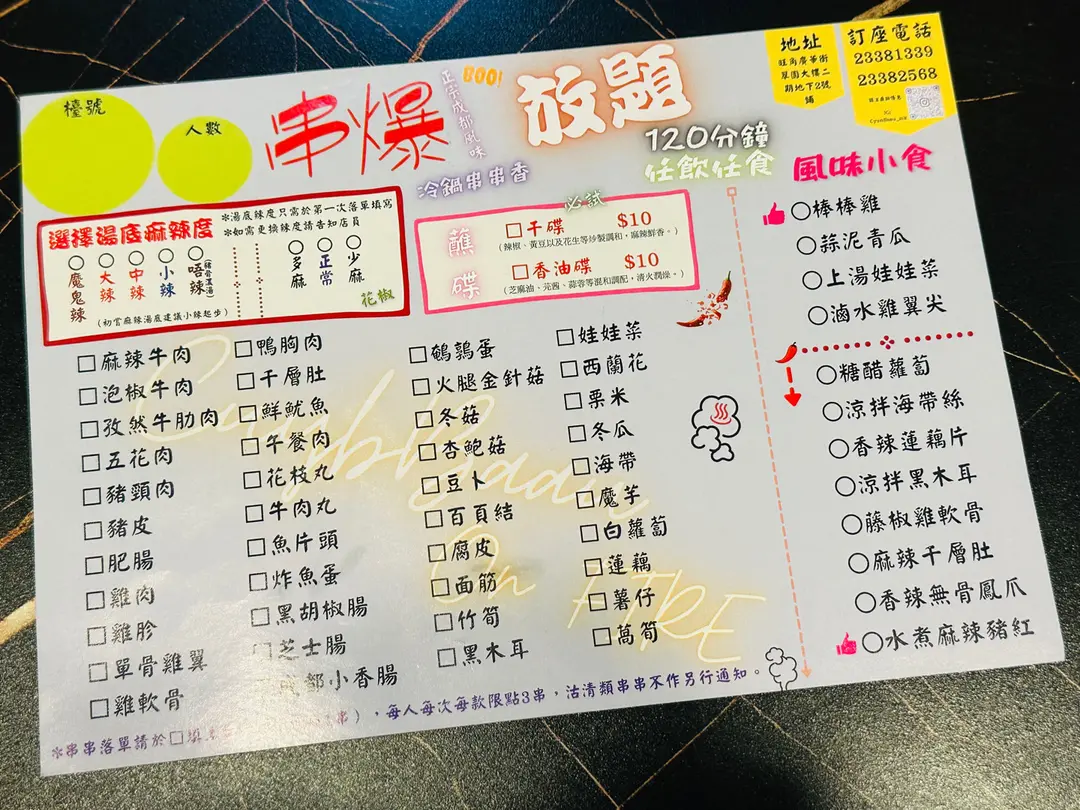 檯號
人數
串爆
正宗成都風味
BOO!
放題
120分鐘
任飲任食
冷鍋串串香
地址
旺角廣華街
翠園大樓二
期地下2號
舖
訂座電話
23381339
23382568
選擇湯底麻辣度
*湯底辣度只需於第一次落單填寫
*如需更換辣度請告知店員
○魔鬼辣
○大辣
○中辣
○小辣
○唔辣
○多麻
○正常
○少麻
花椒
(初嘗麻辣湯底建議小辣起步)
必試
蘸碟
□干碟 $10
(辣椒、黃豆以及花生等炒製調和，麻辣鮮香。)
□香油碟 $10
(芝麻油、芫茜、蒜蓉等混和調配，清火潤燥。)
□麻辣牛肉
□泡椒牛肉
□孜然牛肋肉
□五花肉
□豬頸肉
□豬皮
□肥腸
□雞肉
□雞胗
□單骨雞翼
□雞軟骨
□鴨胸肉
□千層肚
□鮮魷魚
□午餐肉
□花枝丸
□牛肉丸
□魚片頭
□炸魚蛋
□黑胡椒腸
□芝士腸
部小香腸
□鵪鶉蛋
□火腿金針菇
□冬菇
□杏鮑菇
□豆卜
□百頁結
□腐皮
□面筋
□竹筍
□黑木耳
□娃娃菜
□西蘭花
□栗米
□冬瓜
□海帶
□魔芋
□白蘿蔔
□蓮藕
□薯仔
□萵筍
風味小食
○棒棒雞
○蒜泥青瓜
○上湯娃娃菜
○滷水雞翼尖
○糖醋蘿蔔
○涼拌海帶絲
○香辣蓮藕片
○涼拌黑木耳
○藤椒雞軟骨
○麻辣千層肚
○香辣無骨鳳爪
○水煮麻辣豬紅
On FIRE
*串串落單請於□填 串)，每人每次每款限點3串，沽清類串串不作另行通知。